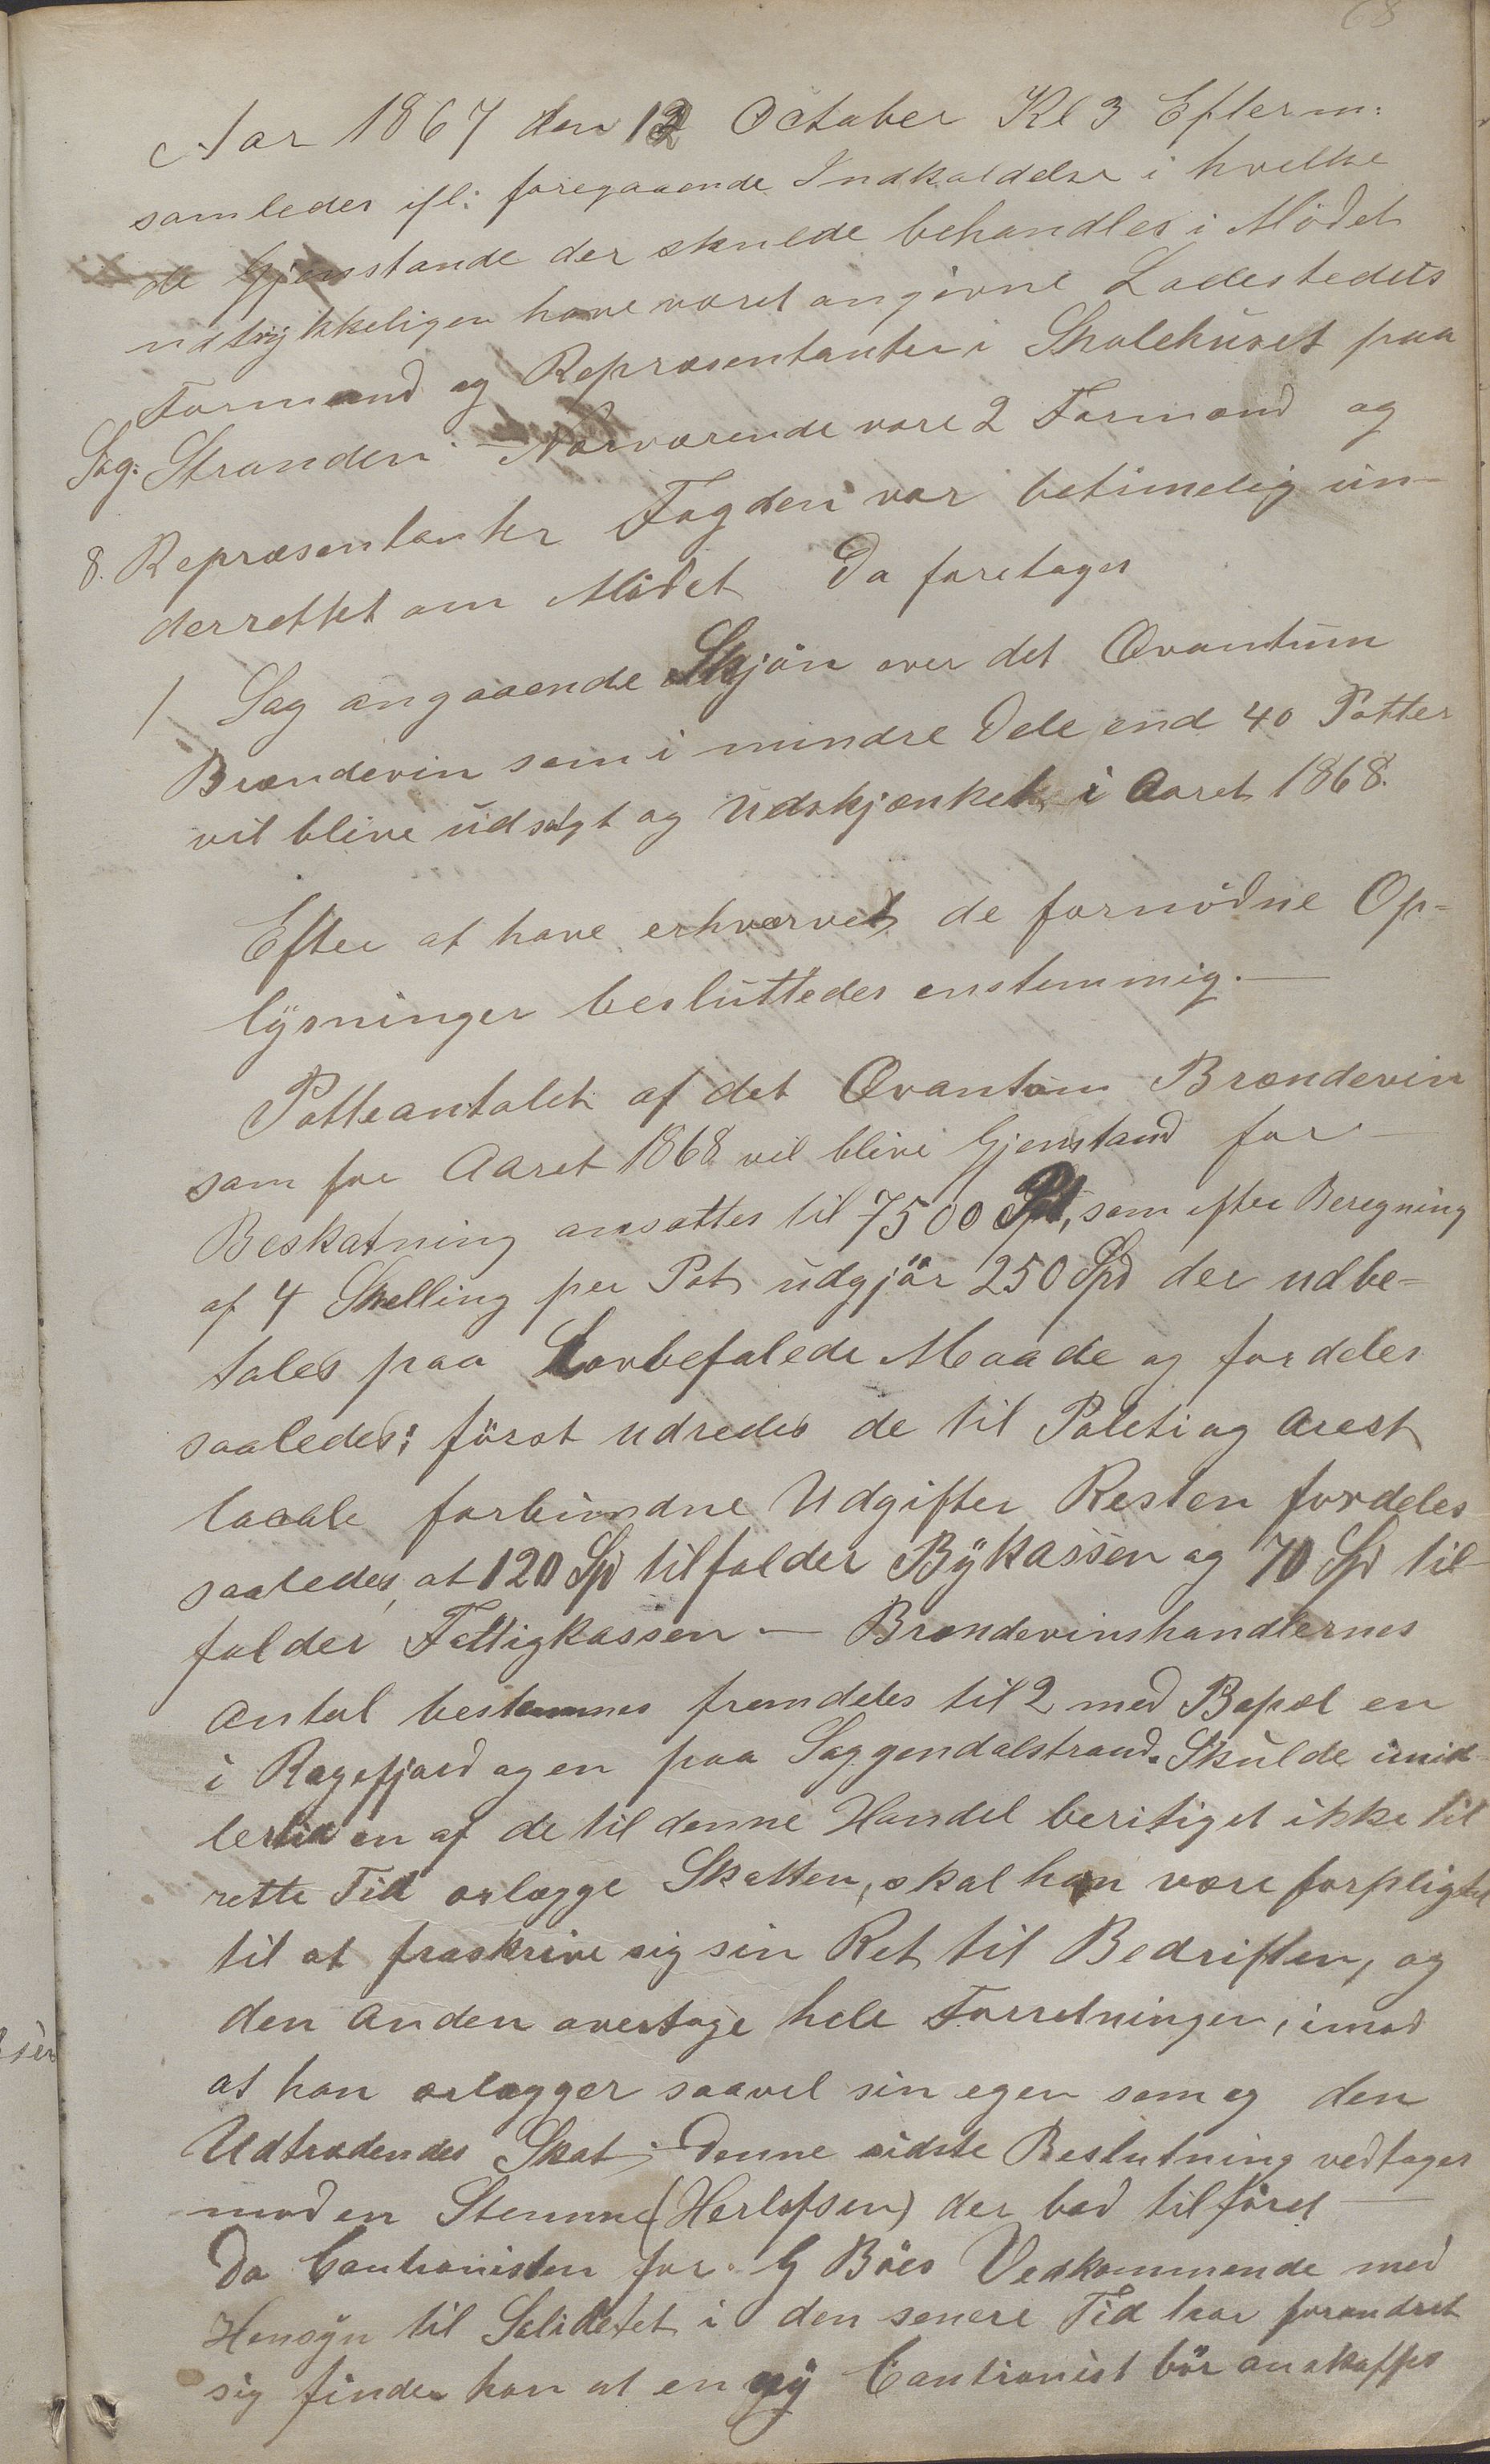 68
Aar 1867 den 12 October Kl 3 Efterm:
samledes ifl: foregaaende Indkaldelse i hvilke
de Gjenstande der skulde behandles i Mödet
udtrykkeligen have været angivne Ladestedets
Formænd og Repræsentanter i Skolehuset paa
Sog: Stranden. Nærværende vare 2 Formænd og
8. Repræsentanter Fogden var betimelig un-
derrettet om Mödet Da foretages
1 Sag angaaende Skjön over det Qvantum
Brændevin som i mindre Dele end 40 Potter
vil blive udsolgt og Udskjænket i Aaret 1868.
Efter at have erhvervet de fornödne Op-
lysninger besluttedes enstemmig.
Potteantalet af det Qvantum Brændevin
som for Aaret 1868 vil blive Gjenstand for
Beskatning ansættes til 7500 Pt, som efter Beregning
af 4 Skelling per Pot udgjör 250 Spd der udbe-
tales paa Lovbefalede Maade og fordeles
saaledes: först udredes de til Politi og Arest
locale forbundne Udgifter Resten fordeles
saaledes, at 120 Spd tilfalder Bykassen og 70 Spd til-
falder Fattigkassen — Brændevinshandlernes
Antal bestemmes fremdeles til 2 med Bopæl en
i Rægefjord og en paa Soggendalstrand. Skulde imid-
lertid en af de til denne Handel beritiget ikke til
rette Tid erlægge Skatten, skal han være forpligtet
til at fraskrive sig sin Ret til Bedriften, og
den Anden overtage hele Forretningen, imod
at han erlægger saavel sin egen som og den
Udtrædendes Skat; denne sidste Beslutning vedtages
mod en Stemme (Herlofsen) der bad tilföret
Da Cautionisten for G Böes Vedkommende med
Hensyn til Soliditet i den senere Tid har forandret
sig finder han at en ny Cautionist bör anskaffes